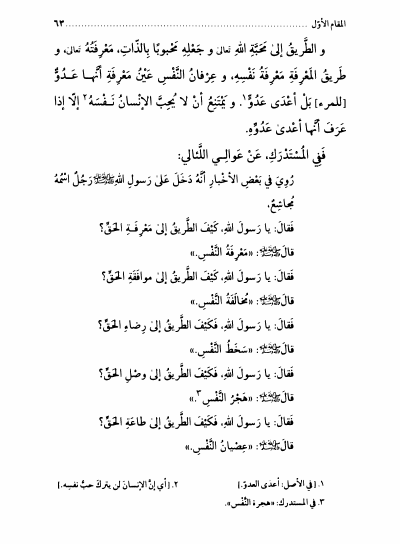 المقام الأوّل ........................................................ ٦٣
و الطَّريقُ إلىٰ مَحَبَّةِ اللهِ تعالىٰ و جَعْلِهِ مَحْبوبًا بِالذّاتِ، مَعْرِفَتُهُ تعالىٰ، و
طَريقُ المَعْرِفَةِ مَعْرِفَةُ نَفْسِهِ، و عِرْفانُ النَّفْسِ عَيْنُ مَعْرِفَةِ أنَّها عَدُوٌّ
[للمرء] بَلْ أعْدَى عَدُوٍّ١. و يَمْتَنِعُ أنْ لا يُحِبَّ الإنْسانُ نَفْسَهُ٢ إلّا إذا
عَرَفَ أنَّها أعْدىٰ عَدُوِّهِ.
فَفِي المُسْتَدْرَكِ، عَنْ عَوالِي اللَّئالي:
رُوِيَ في بَعْضِ الأخْبارِ أنَّهُ دَخَلَ عَلىٰ رَسولِ اللهِﷺ رَجُلٌ اسْمُهُ
مُجاشِعٌ،
فَقالَ: يا رَسولَ اللهِ، كَيْفَ الطَّريقُ إلىٰ مَعْرِفَةِ الحَقِّ؟
قالَﷺ: «مَعْرِفَةُ النَّفْسِ.»
فَقالَ: يا رَسولَ اللهِ، كَيْفَ الطَّريقُ إلىٰ موافَقَةِ الحَقِّ؟
قالَﷺ: «مُخالَفَةُ النَّفْسِ.»
فَقالَ: يا رَسولَ اللهِ، فَكَيْفَ الطَّريقُ إلىٰ رِضاءِ الحَقِّ؟
قالَﷺ: «سَخَطُ النَّفْسِ.»
فَقالَ: يا رَسولَ اللهِ، فَكَيْفَ الطَّريقُ إلىٰ وصْلِ الحَقِّ؟
قالَﷺ: «هَجْرُ النَّفْسِ٣.»
فَقالَ: يا رَسولَ اللهِ، فَكَيْفَ الطَّريقُ إلىٰ طاعَةِ الحَقِّ؟
قالَﷺ: «عِصْيانُ النَّفْسِ.»
١. [في الأصل: أعدَى العدوّ.] ٢. [أي إنَّ الإنسانَ لن يتركَ حبَّ نفسِه.]
٣. في المستدرك: «هجرة النَّفْس».